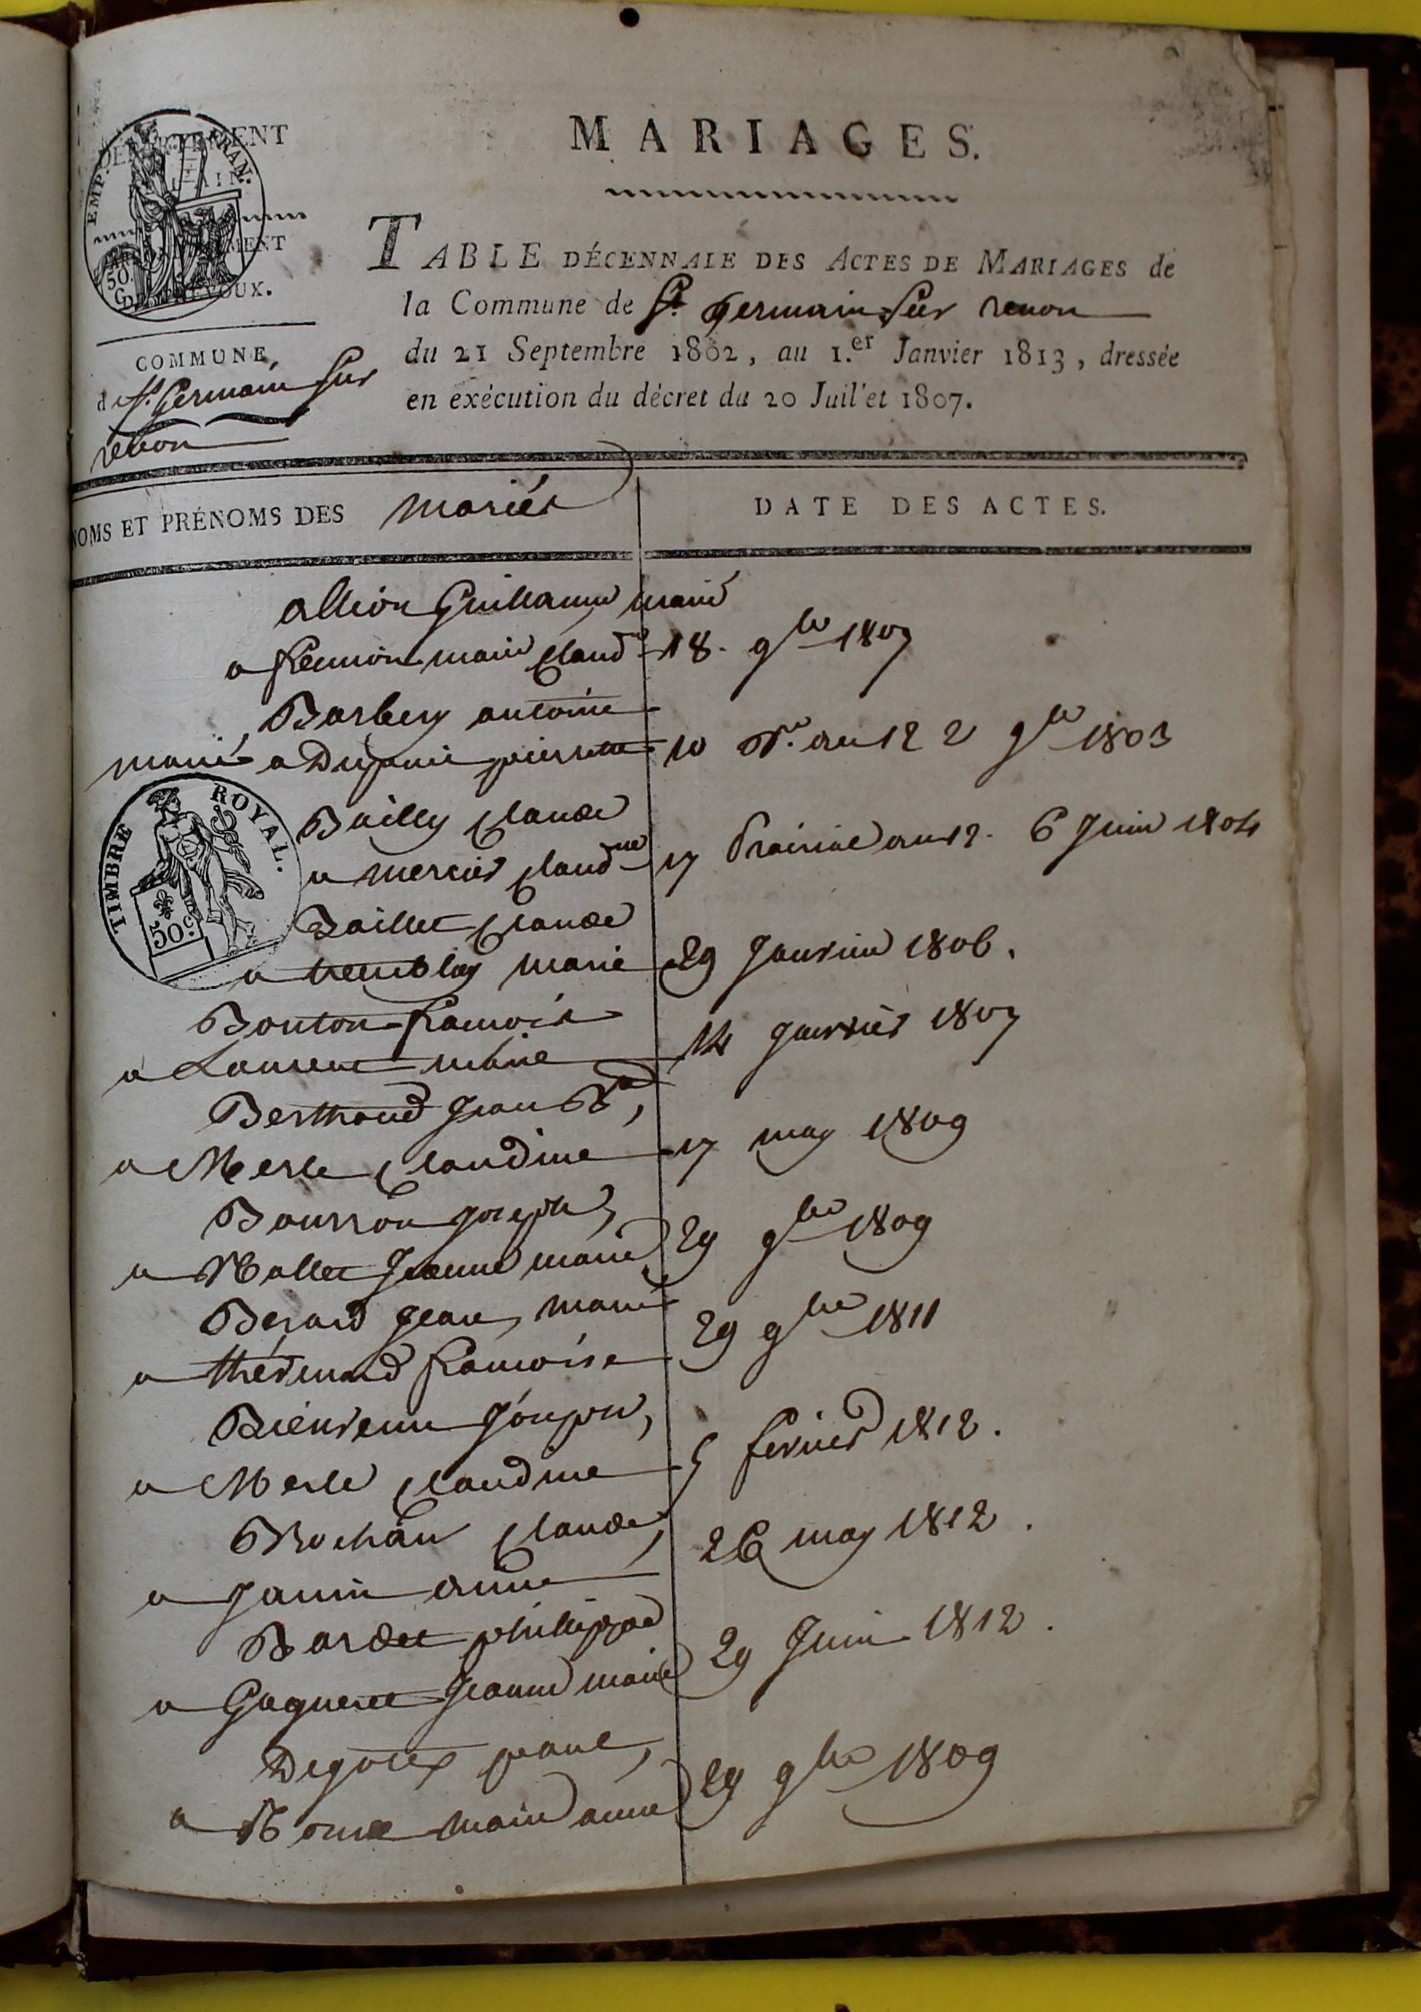 MARIAGES.
DÉPARTEMENT
EMP. FRAN.
50 C
DE TRÉVOUX.
TABLE DÉCENNALE DES ACTES DE MARIAGES de
la Commune de St. germain Sur renon
du 21 Septembre 1802, au 1.er Janvier 1813, dressée
en exécution du décret du 20 Juillet 1807.
COMMUNE
de St. Germain Sur
renon
NOMS ET PRÉNOMS DES mariés
DATE DES ACTES.
Guillaume marié
a marie claude 18. 9bre 1807
Barbery antoine
marié a Dupuis pierrette 10 Br.e an 12 2 9bre 1803
TIMBRE ROYAL.
50 c
Bailly claude
a mercier claudine 17 Prairial an 12. 6 Juin 1804
Baillet claude
a tremblay marie 29 Janvier 1806.
Bouton francois
a Laurent marie 14 janvier 1807
Berthoud jean Bte,
a Merle claudine 17 may 1809
Bourron joseph,
a Mallet Jeanne marie 29 9bre 1809
Berard jean, marié
a thévenard francoise 29 9bre 1811
Bienvenu Joseph,
a Merle claudine 5 fevrier 1812.
Brochan claude,
a Janin anne 26 may 1812.
Bardet philippe
a Gagneret Jeanne marie 29 Juin 1812.
paul,
a marie anne 29 9bre 1809